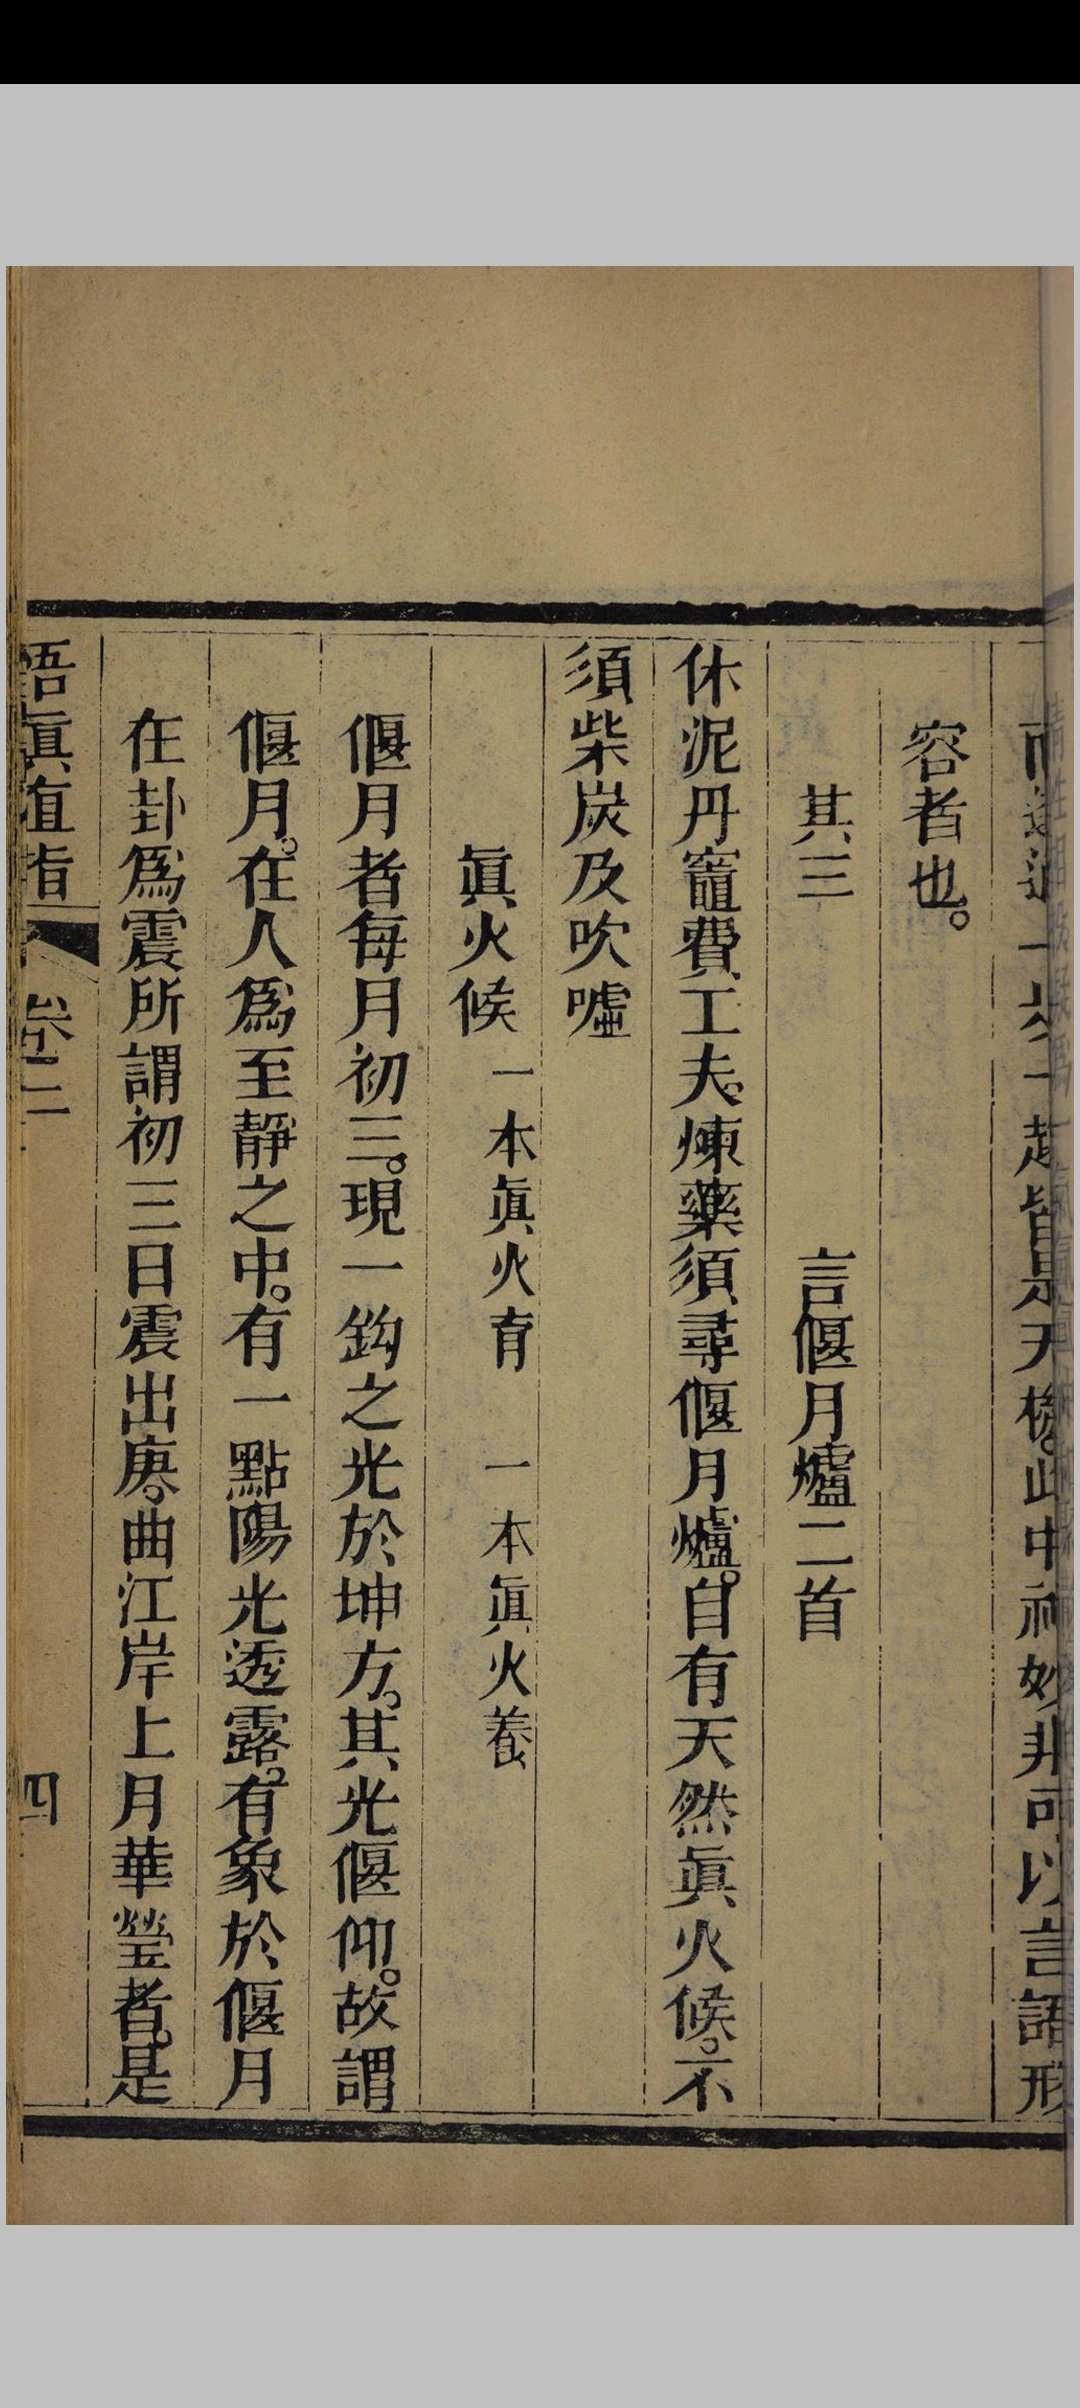 一步一趨皆是天機。此中神妙非可以言語形
容者也。
其三 言偃月爐二首
休泥丹竈費工夫。煉藥須尋偃月爐。自有天然眞火候。不
須柴炭及吹噓
眞火候 一本眞火育 一本眞火養
偃月者每月初三。現一鈎之光於坤方。其光偃仰。故謂
偃月。在人爲至靜之中。有一點陽光透露。有象於偃月
在卦爲震所謂初三日震出庚。曲江岸上月華瑩者。是
悟眞直指 卷二 四